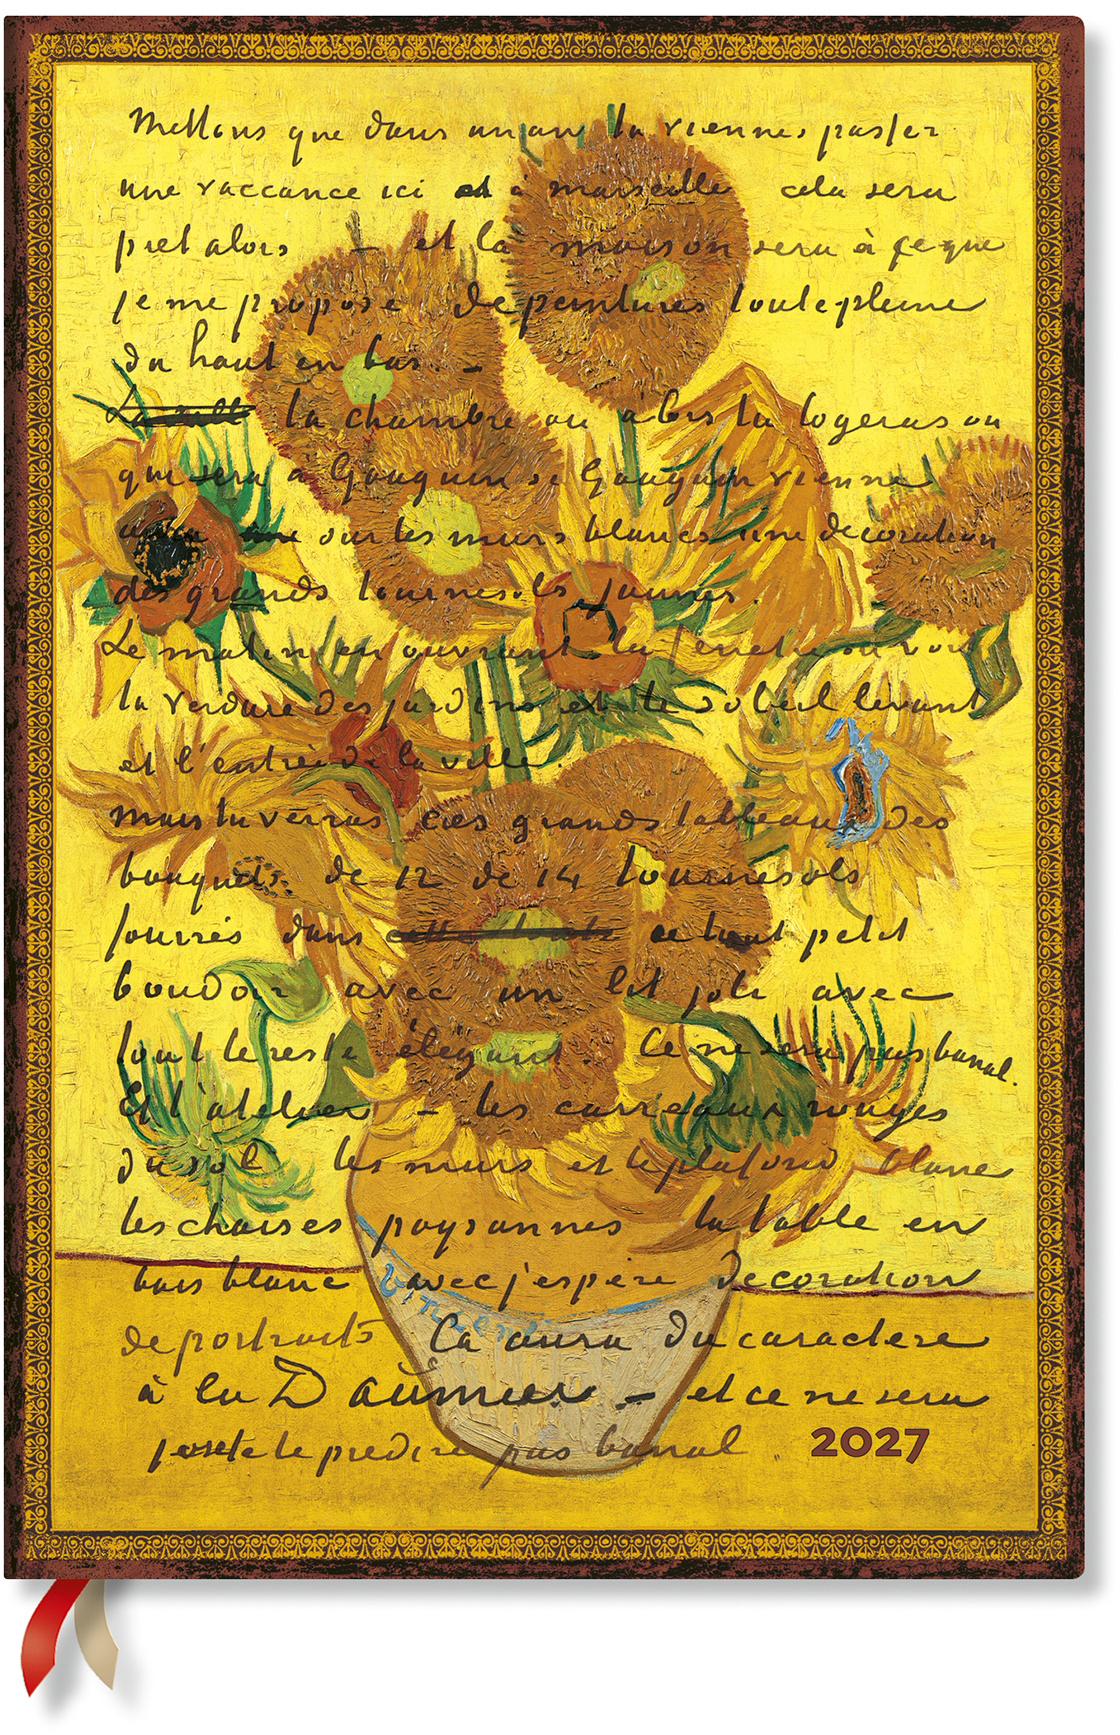 Mettons que dans un an tu viennes passer
une vaccance ici et à marseille cela sera
pret alors – et la maison sera à ce que
je me propose de peintures toute pleine
du haut en bas. –
la chambre ou alors tu logeras ou
qui sera à Gauguin si Gauguin vienne
aura sur les murs blancs une decoration
des grands tournesols jaunes.
Le matin en ouvrant la fenetre on voit
la verdure des jardins et le soleil levant
et l'entrée de la ville
Mais tu verras ces grands tableaux des
bouquets de 12 de 14 tournesols
fourrés dans ce tout petit
boudoir avec un lit joli avec
tout le reste élégant. Ce ne sera pas banal.
Et l'atelier – les carreaux rouges
du sol les murs et le plafond blancs
les chaises paysannes la table en
bois blanc avec j'espère decoration
de portraits Ça aura du caractere
à la Daumier – et ce ne sera
je le predire pas banal.
Vincent
2027